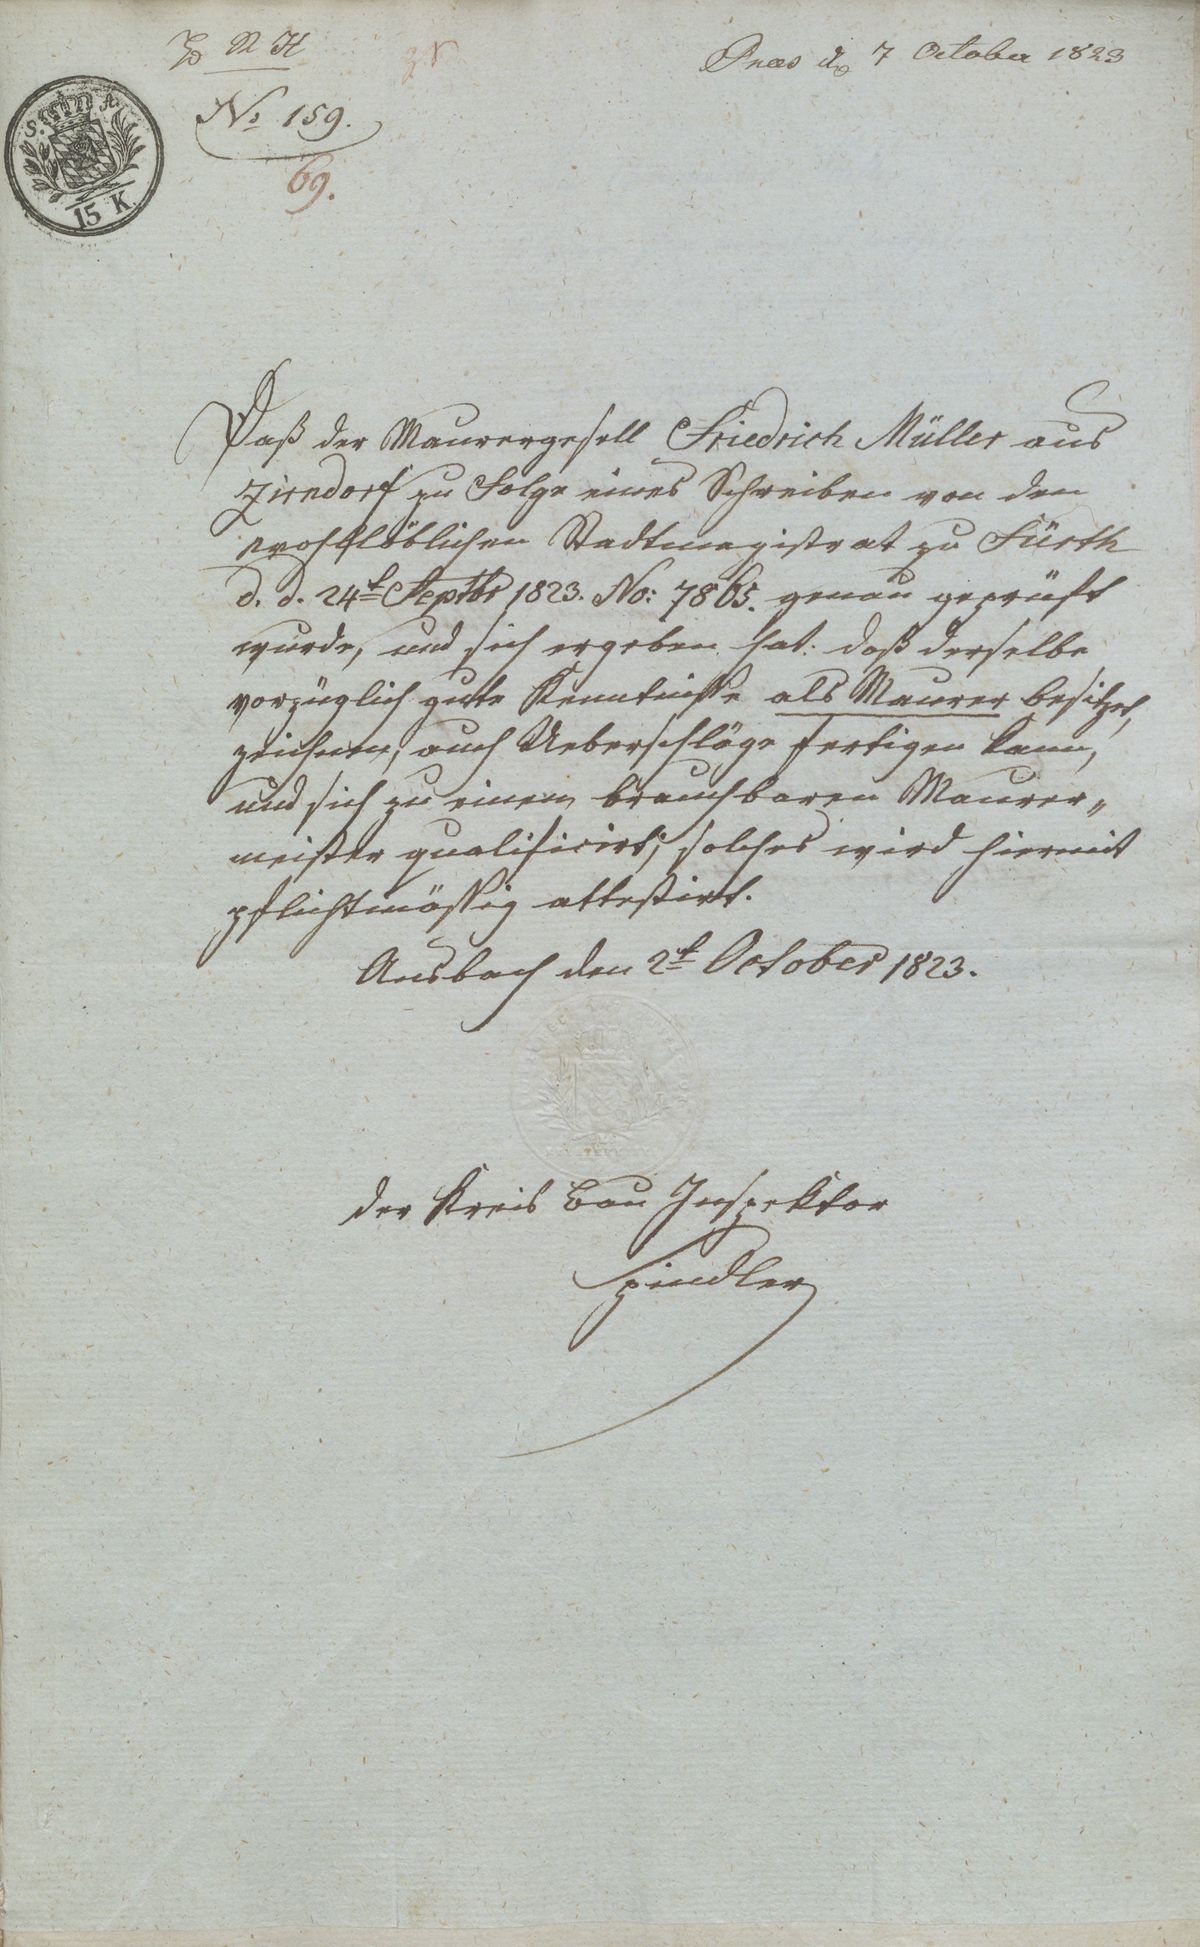 Praes d. 7 October 1823
No 159.
69.
S. A.
15 K.
Daß der Maurergesell Friedrich Müller aus
Zirndorf zu Folge eines Schreiben von den
wohllöblichen Stadtmagistrat zu Fürth
d. d. 24t Septbr 1823. No: 7865. genau geprüft
wurde, und sich ergeben hat: daß derselbe
vorzüglich gute Kenntniße als Maurer besitzet,
zeichnen, auch Ueberschläge fertigen kann,
und sich zu einem brauchbaren Maurer„
meister qualificirt; solches wird hiermit
pflichtmäßig attestirt.
Ansbach den 2t October 1823.
der Kreis Bau Inspektor
Spindler